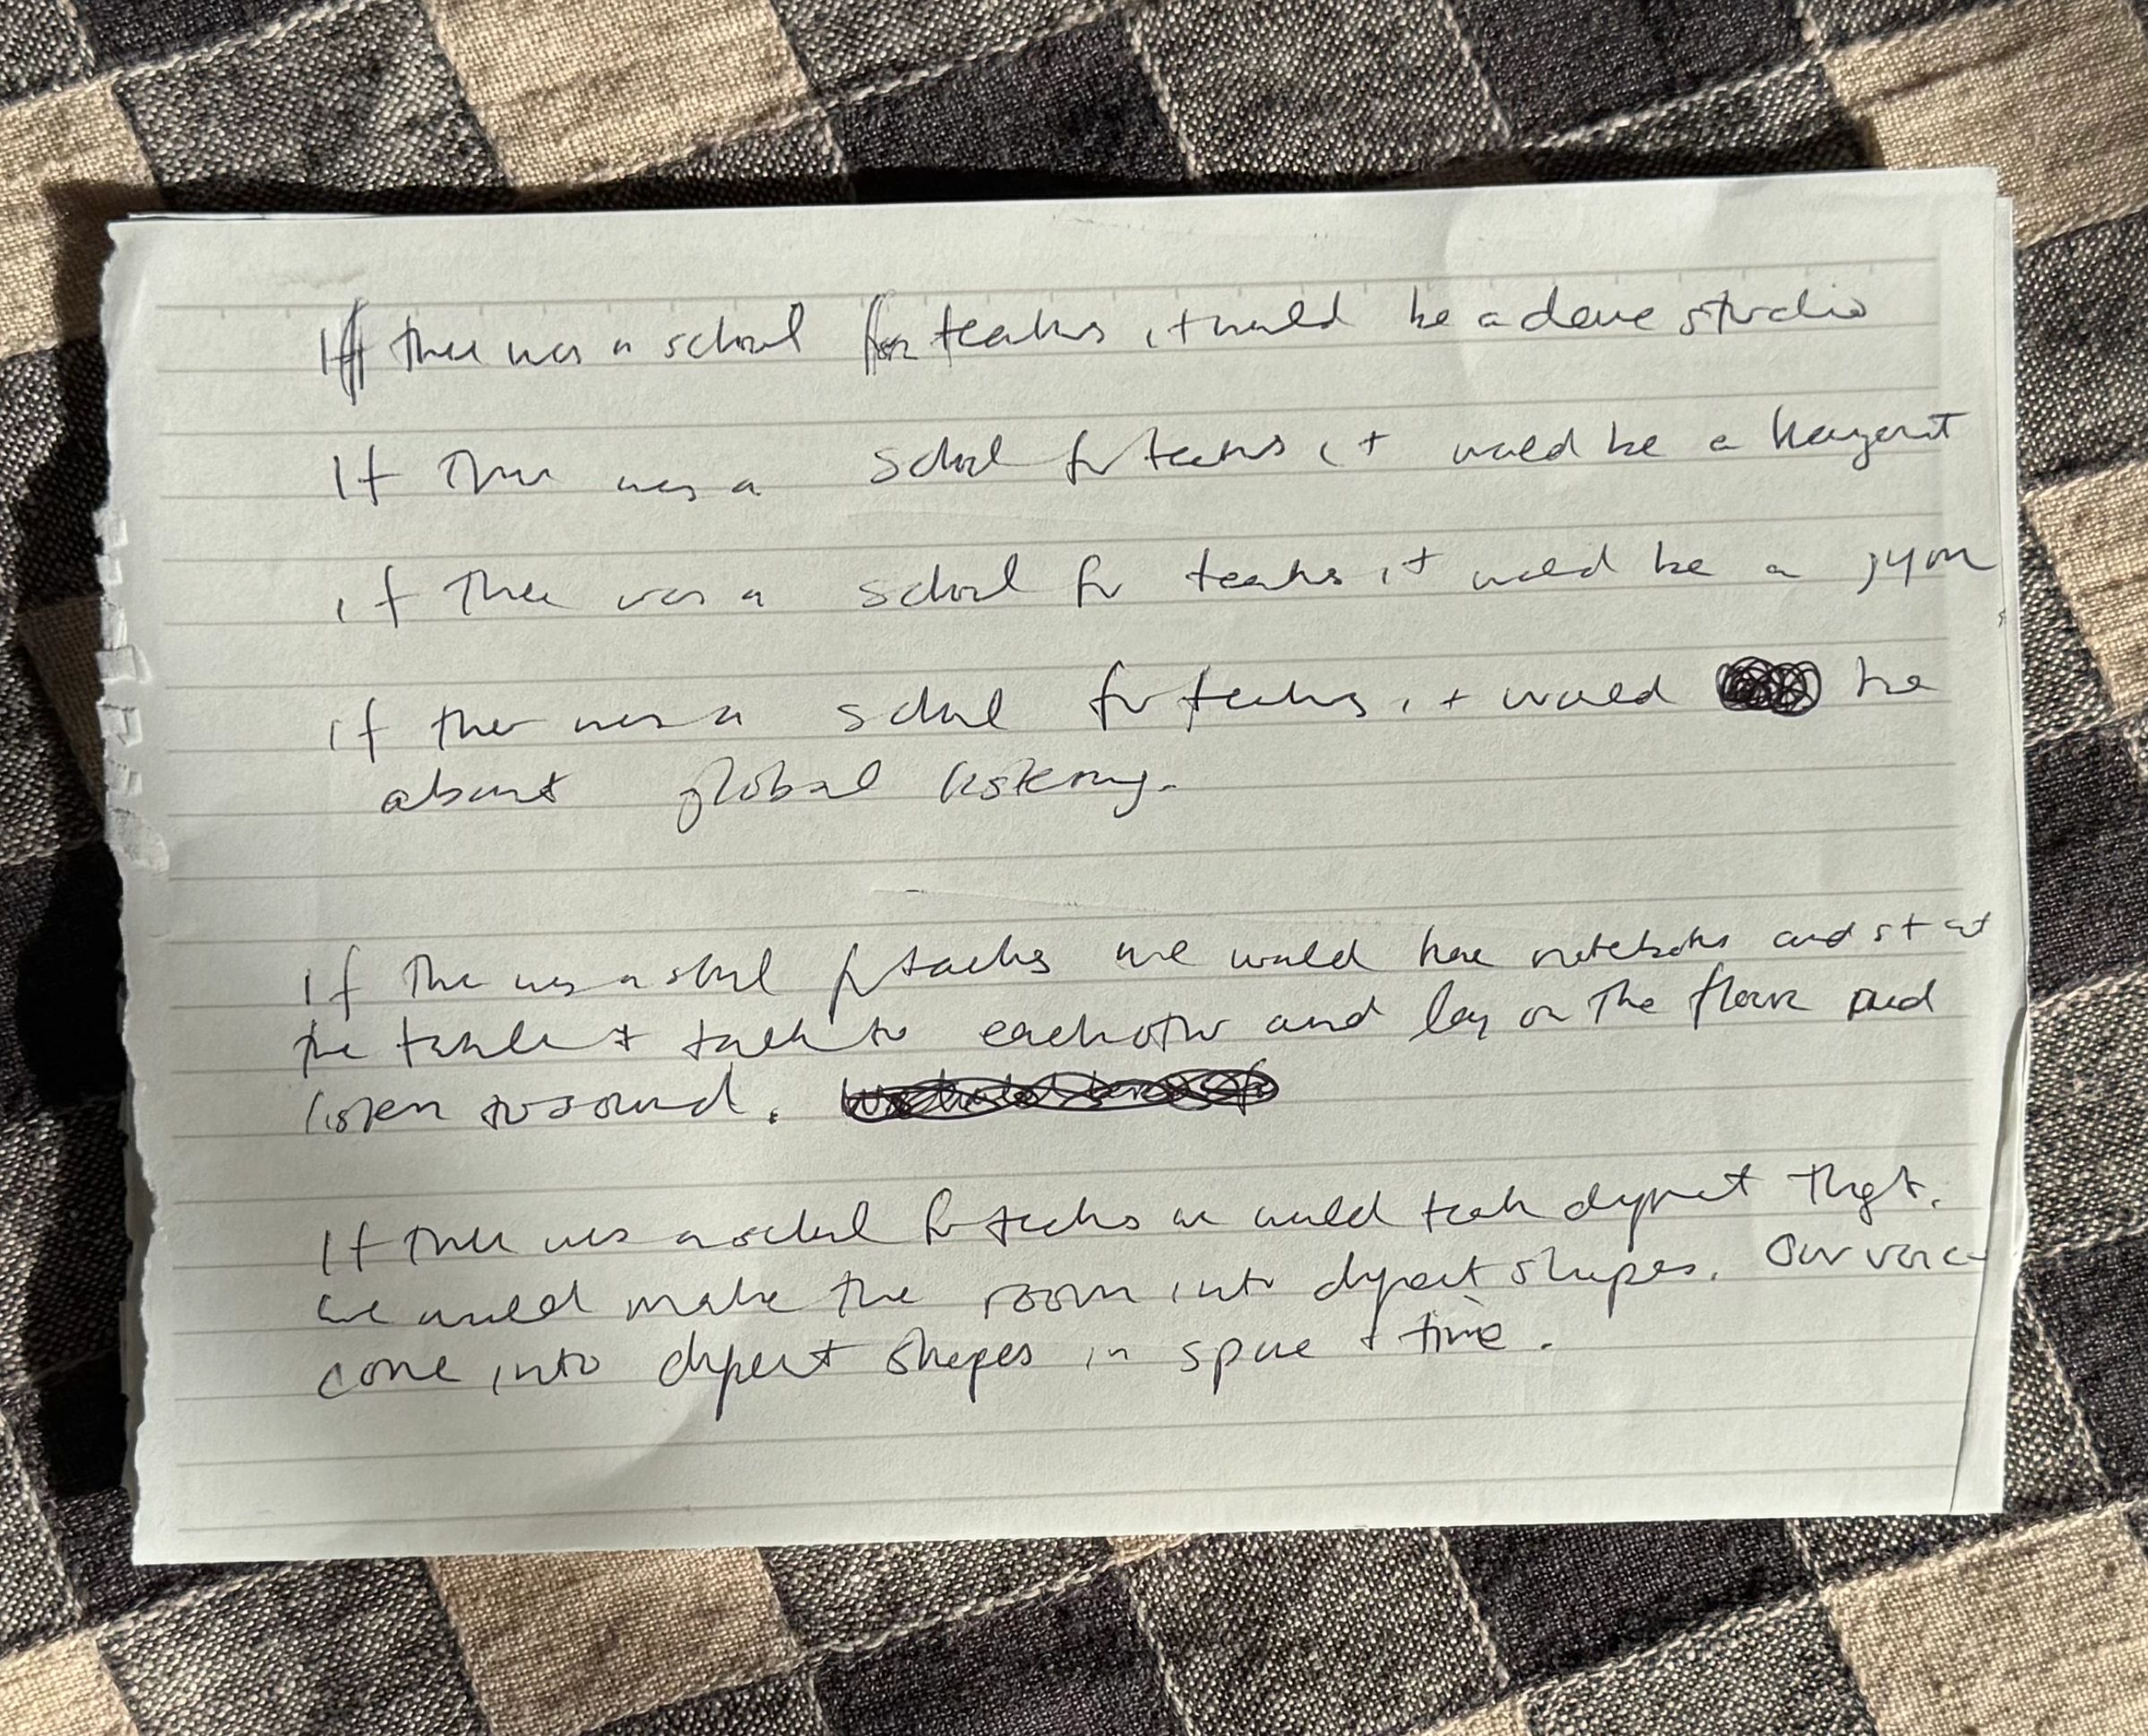 If there was a school for teachers it would be a dance studio
If there was a school for teachers it would be a hangout
if there was a school for teachers it would be a gym
if there was a school for teachers it would be
about global listening.
If there was a school for teachers we would have notebooks and sit at
the table & talk to each other and lay on the floor and
listen to sound.
If there was a school for teachers we would teach different things.
we would make the room into different shapes. Our voice
come into different shapes in space & time.